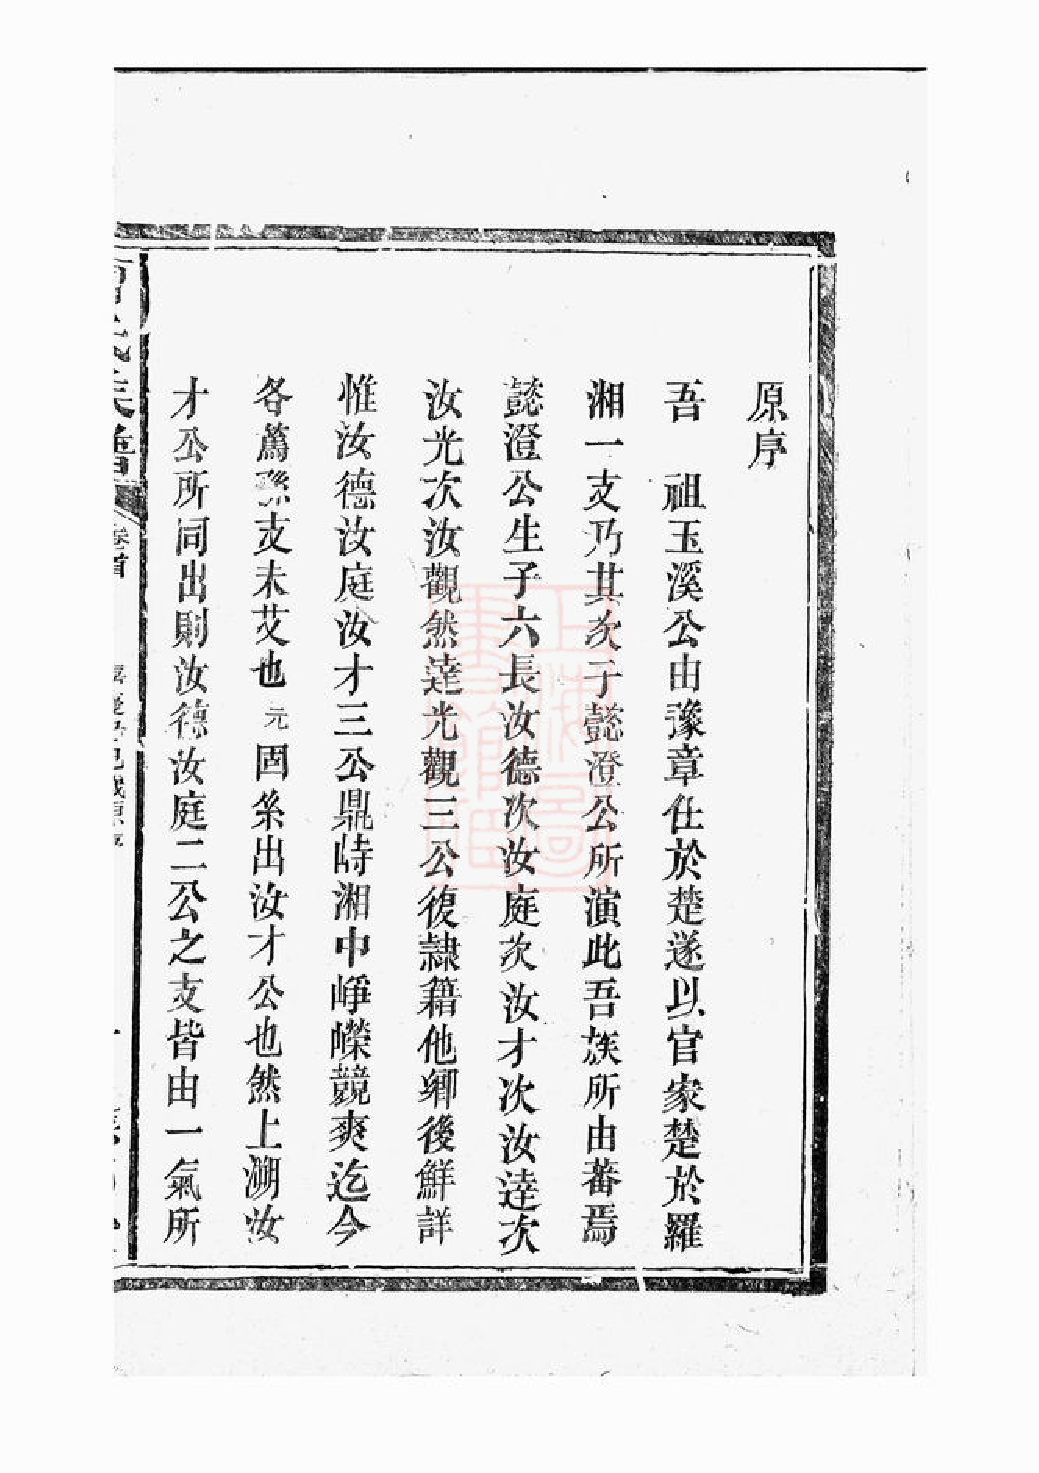 原序
吾　祖玉溪公由豫章仕於楚遂以官家楚於羅
湘一支乃其次子懿澄公所演此吾族所由蕃焉
懿澄公生子六長汝德次汝庭次汝才次汝達次
汝光次汝觀然達光觀三公復隷籍他鄉後鮮詳
惟汝德汝庭汝才三公鼎峙湘中崢嶸競爽迄今
各蕃孫支未艾也元固系出汝才公也然上溯汝
才公所同出則汝德汝庭二公之支皆由一氣所
氏族譜
卷首